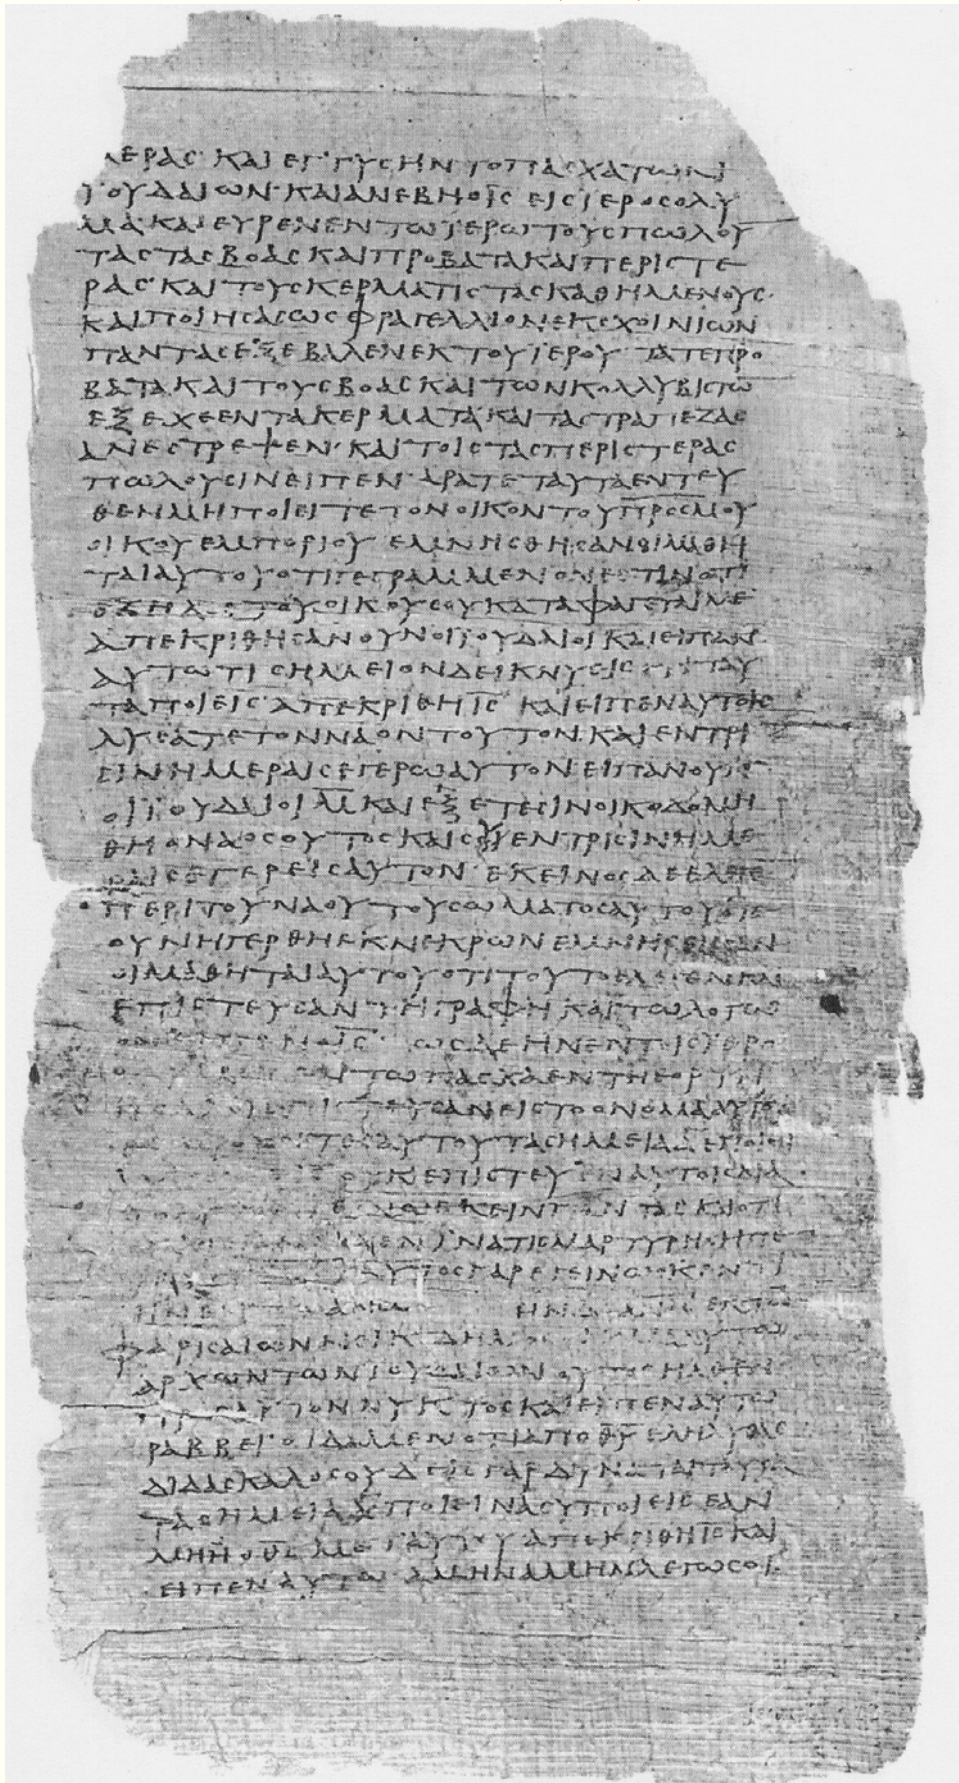 μερας· και εγ'γυς ην το πασχα των
ϊουδαιων· και ανεβη ο ι̅ς̅ εις ϊεροσολυ
μα· και ευρεν εν τω ϊερωι τους πωλου
τας τας βοας και προβατα και περιστε
ρας· και τους κερματιστας καθημενους·
και ποιησας ως φραγελλιον εκ σχοινιων
παντας εξεβαλεν εκ του ϊερου· τα τε προ
βατα και τους βοας και των κολλυβιστω̅
εξεχεεν τα κερματα και τας τραπεζας
ανεστρεψεν· και τοις τας περιστερας
πωλουσιν ειπεν· αρατε ταυτα εντευ
θεν μη ποιειτε τον οικον του π̅ρ̅ς̅ μου
οικον εμποριου εμνησθησαν οι μαθη
ται αυτου οτι γεγραμμενον εστιν οτι
του οικου σου καταφαγεται με
απεκριθησαν ουν οι ϊουδαιοι και ειπαν
αυτω τι σημειον δεικνυεις ταυ
τα ποιεις· απεκριθη ι̅ς̅ και ειπεν αυτοις
λυσατε τον ναον τουτον και εν τρι
σιν ημεραις εγερω αυτον ειπαν ου̅
οι ϊουδαιοι μ̅ και εξ ετεσιν οικοδομη
θη ο ναος ουτος και συ εν τρισιν ημε
ραις εγερεις αυτον· εκεινος δε ελεγε̅
περι του ναου του σωματος αυτου οτε
ουν ηγερθη εκ νεκρων εμνησθησαν
οι μαθηται αυτου οτι τουτο ελεγεν και
επιστευσαν τη γραφη και τω λογω
ι̅ς̅· ως δε ην εν τ ιεροσο
τω πασχα εν τη εορτη
επιστευσαν εις το ονομα αυτου
αυτου τας σημεια α εποιει
ουκ επιστευεν αυτοις δια
γεινωσκειν παντας και οτι
ειχεν ινα τις μαρτυρηση πε
αυτος γαρ εγεινωσκεν τι
ην εν τω ανω ην εκ τω̅
φαρισαιων νεικοδημος
αρχων των ιουδαιων ουτος ηλθεν
νυκτος και ειπεν αυτω
ραββει· οιδαμεν οτι απο θ̅υ̅ εληλυθας
διδασκαλος ουδεις γαρ δυναται ταυτα
τα σημεια ποιειν α συ ποιεις εαν
μη η ο θ̅ς̅ μετ αυτου απεκριθη ι̅ς̅ και
ειπεν αυτω αμην αμην λεγω σοι·